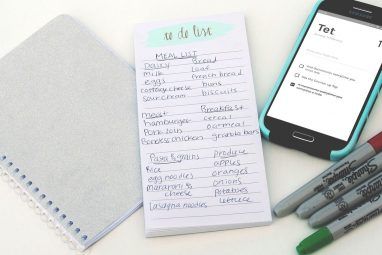 to do list
MEAL LIST
Dairy Bread
milk loaf
eggs french bread
cottage cheese buns
sour cream biscuits
meat Breakfast
hamburger cereal
Pork oatmeal
chicken granola bars
Pasta & grains produce
Rice apples
egg noodles oranges
macaroni & onions
cheese potatoes
lasagna noodles lettuce
Tet
Sharpie
Sharpie
Sharpie